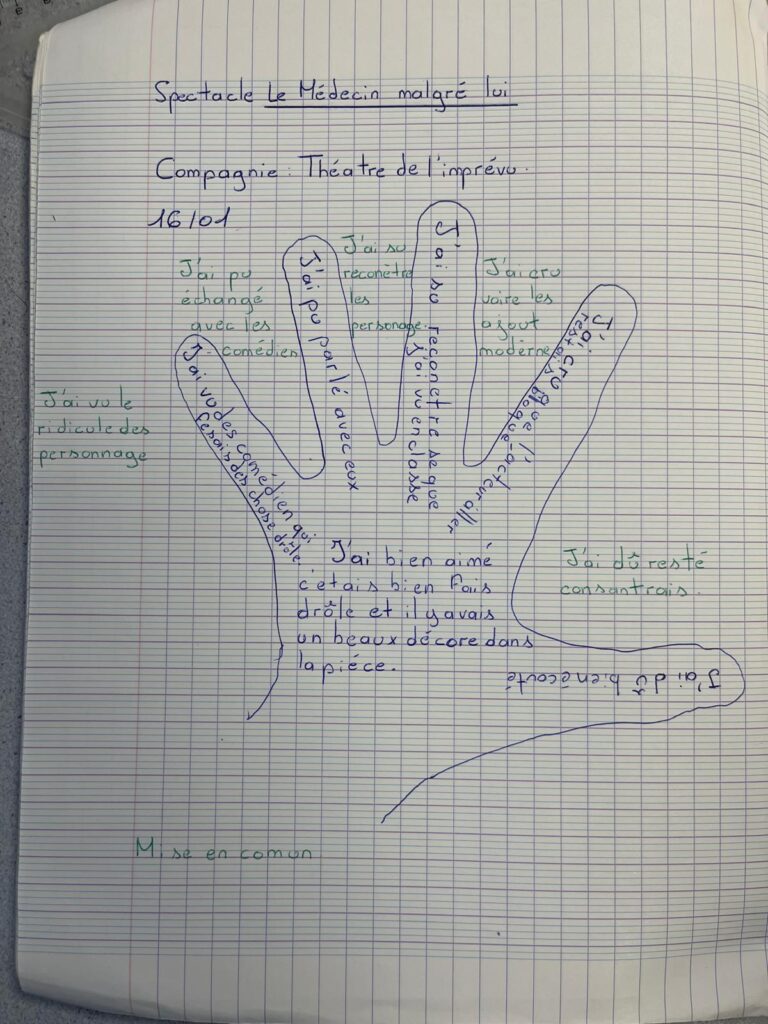 Spectacle Le Médecin malgré lui
Compagnie : Théatre de l'imprévu.
16/01
J'ai vu le
ridicule des
personnagé
J'ai vu des comédien qui
fesais des chose drôle
J'ai pu
échangé
avec les
comédien
J'ai pu parlé avec eux
J'ai su
reconètre
les
personage.
J'ai su reconetre se que
j'ai vu en classe
J'ai cru
voire les
ajout
modérne
J'ai cru que l'acteur aller
restais bloque
J'ai dû resté
consantrais.
J'ai dû bien écouté
J'ai bien aimé
c'étais bien Fais
drôle et il y avais
un beaux décore dans
la piéce.
Mise en comun